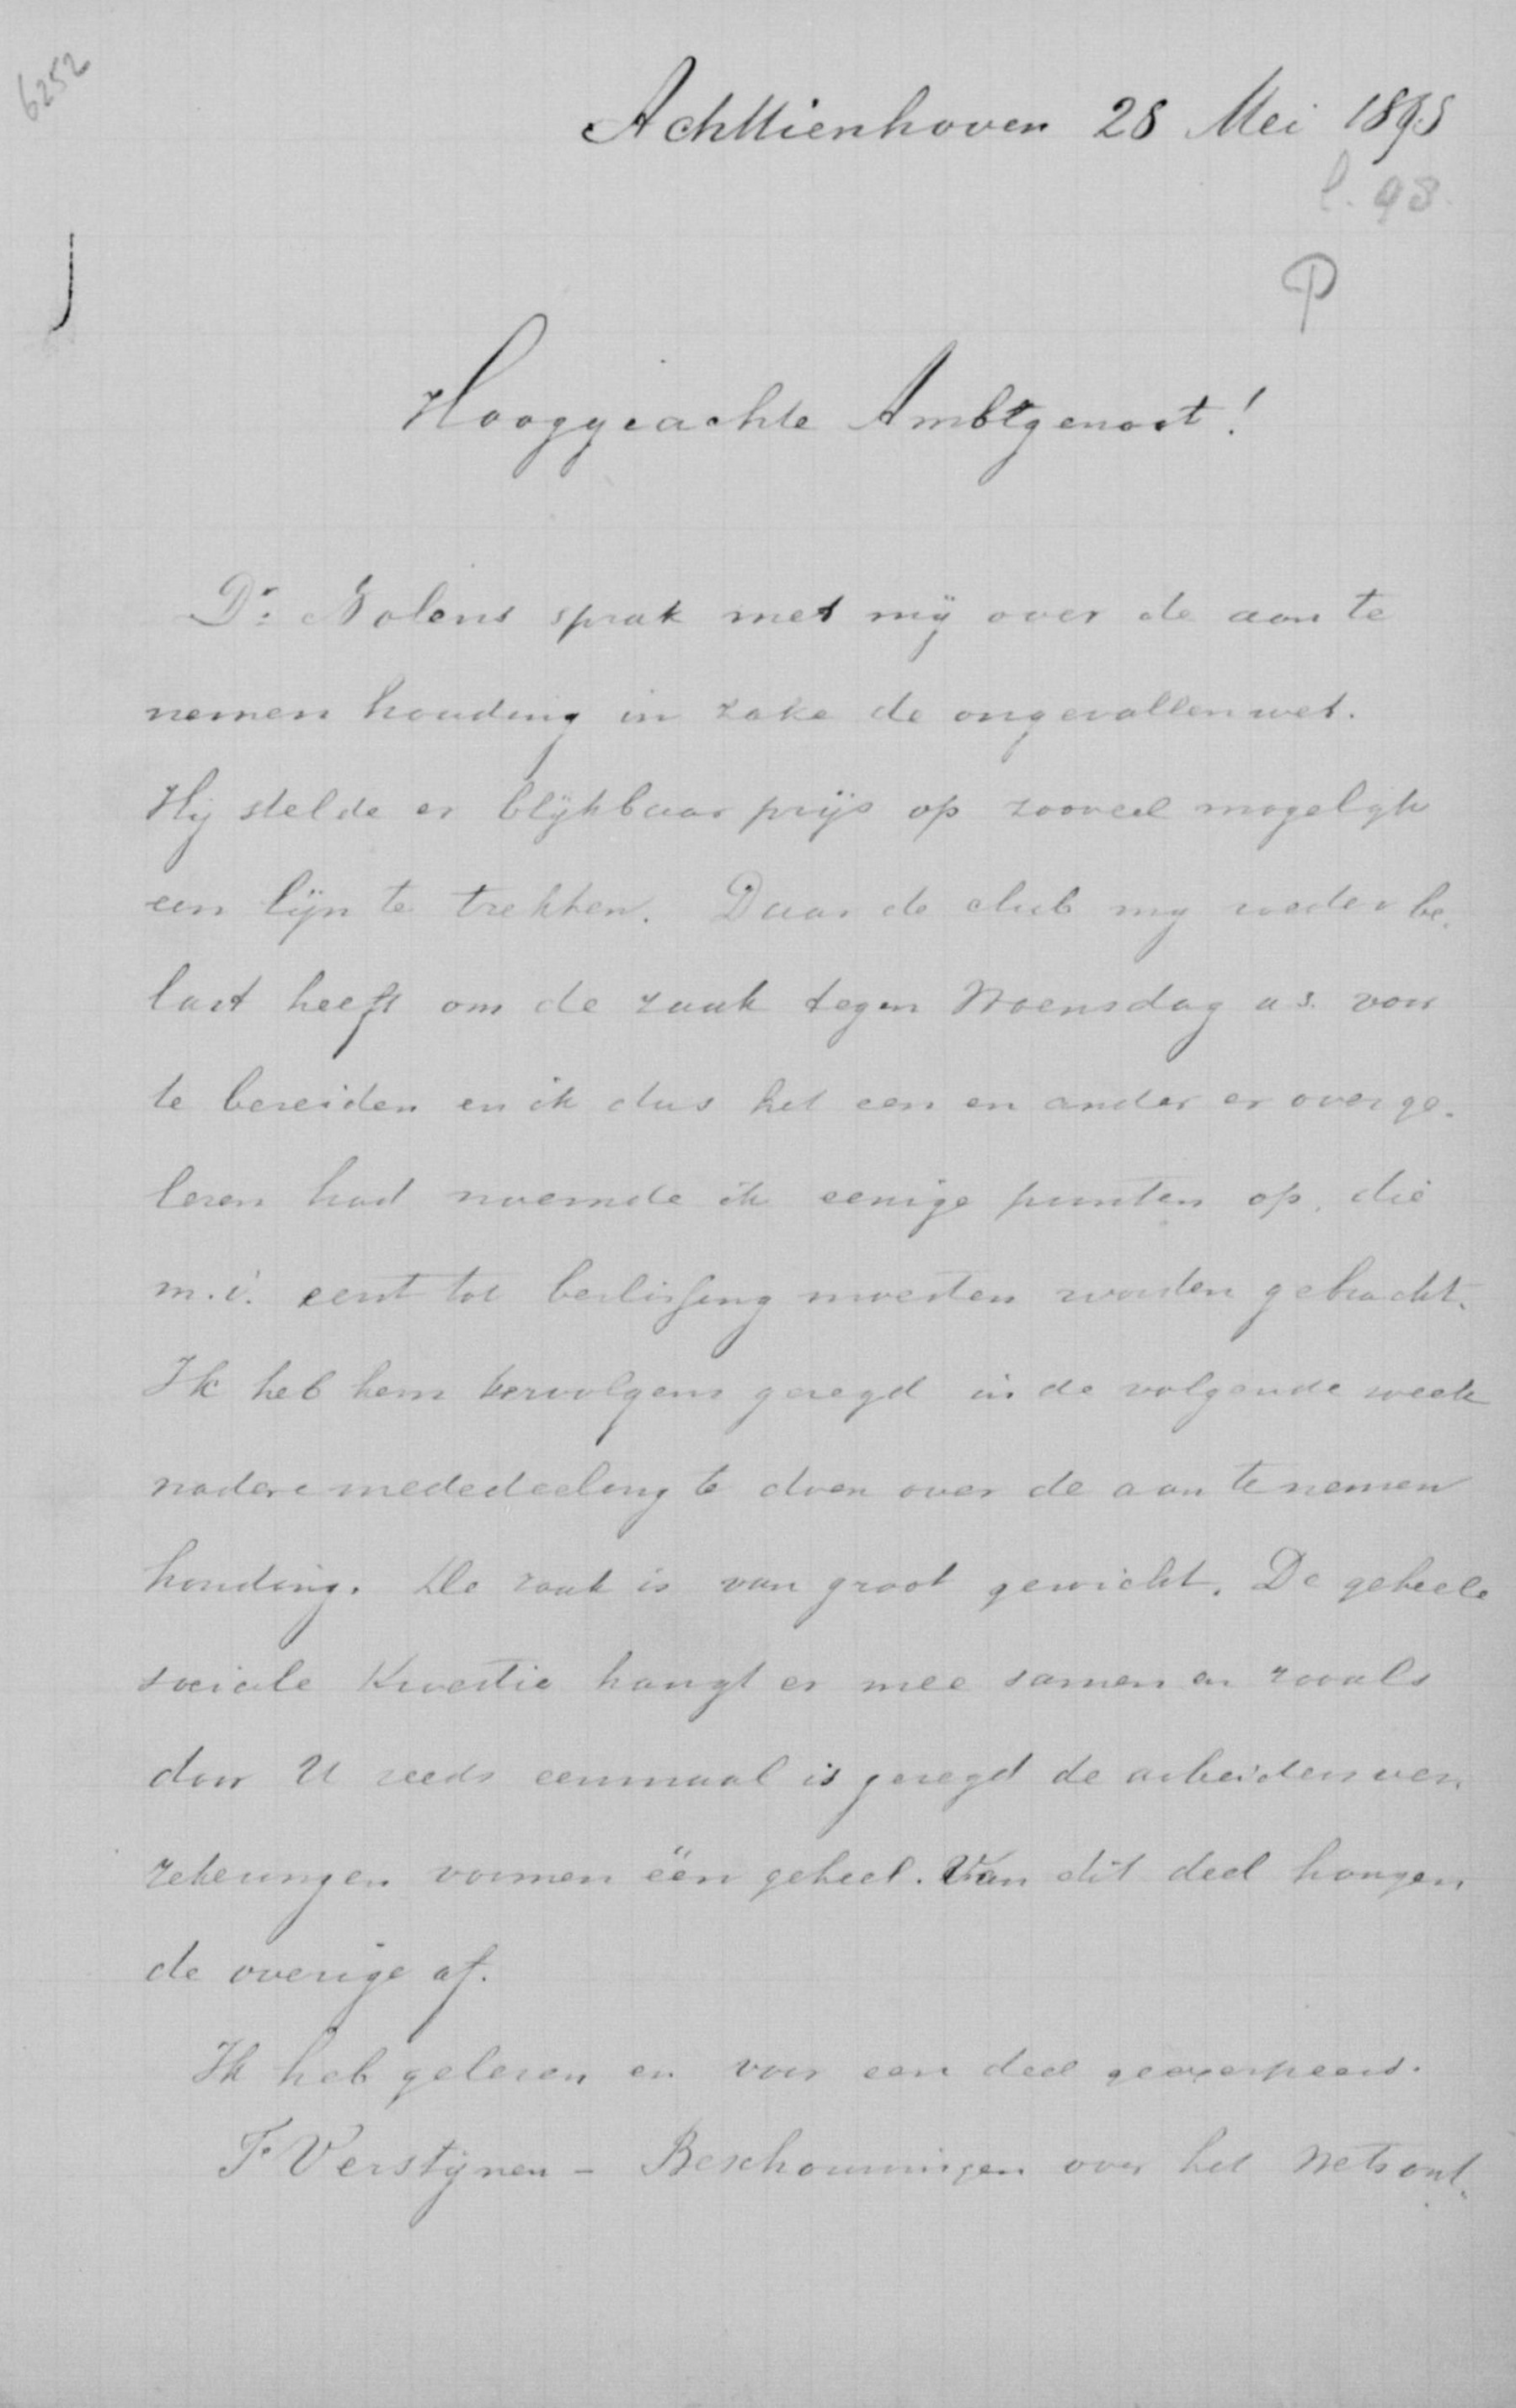 6252
Achttienhoven 28 Mei 1898
l. 98.
P
Hooggeachte Ambtgenoot!
Dr. Nolens sprak met mij over de aan te
nemen houding in zake de ongevallenwet.
Hij stelde er blijkbaar prijs op zooveel mogelijk
een lijn te trekken. Daar de club mij weder be-
last heeft om de zaak tegen Woensdag a.s. voor
te bereiden en ik dus het een en ander er over ge-
lezen had noemde ik eenige punten op, die
m.i. eerst tot beslissing moesten worden gebracht.
Ik heb hem vervolgens gezegd in de volgende week
nadere mededeeling te doen over de aan te nemen
houding. De zaak is van groot gewicht. De geheele
sociale kwestie hangt er mee samen en zooals
door U reeds eenmaal is gezegd de arbeidersver-
zekeringen vormen één geheel. Van dit deel hangen
de overige af.
Ik heb gelezen en voor een deel geëxcerpeerd.
F Verstijnen - Beschouwingen over het Wetsont-